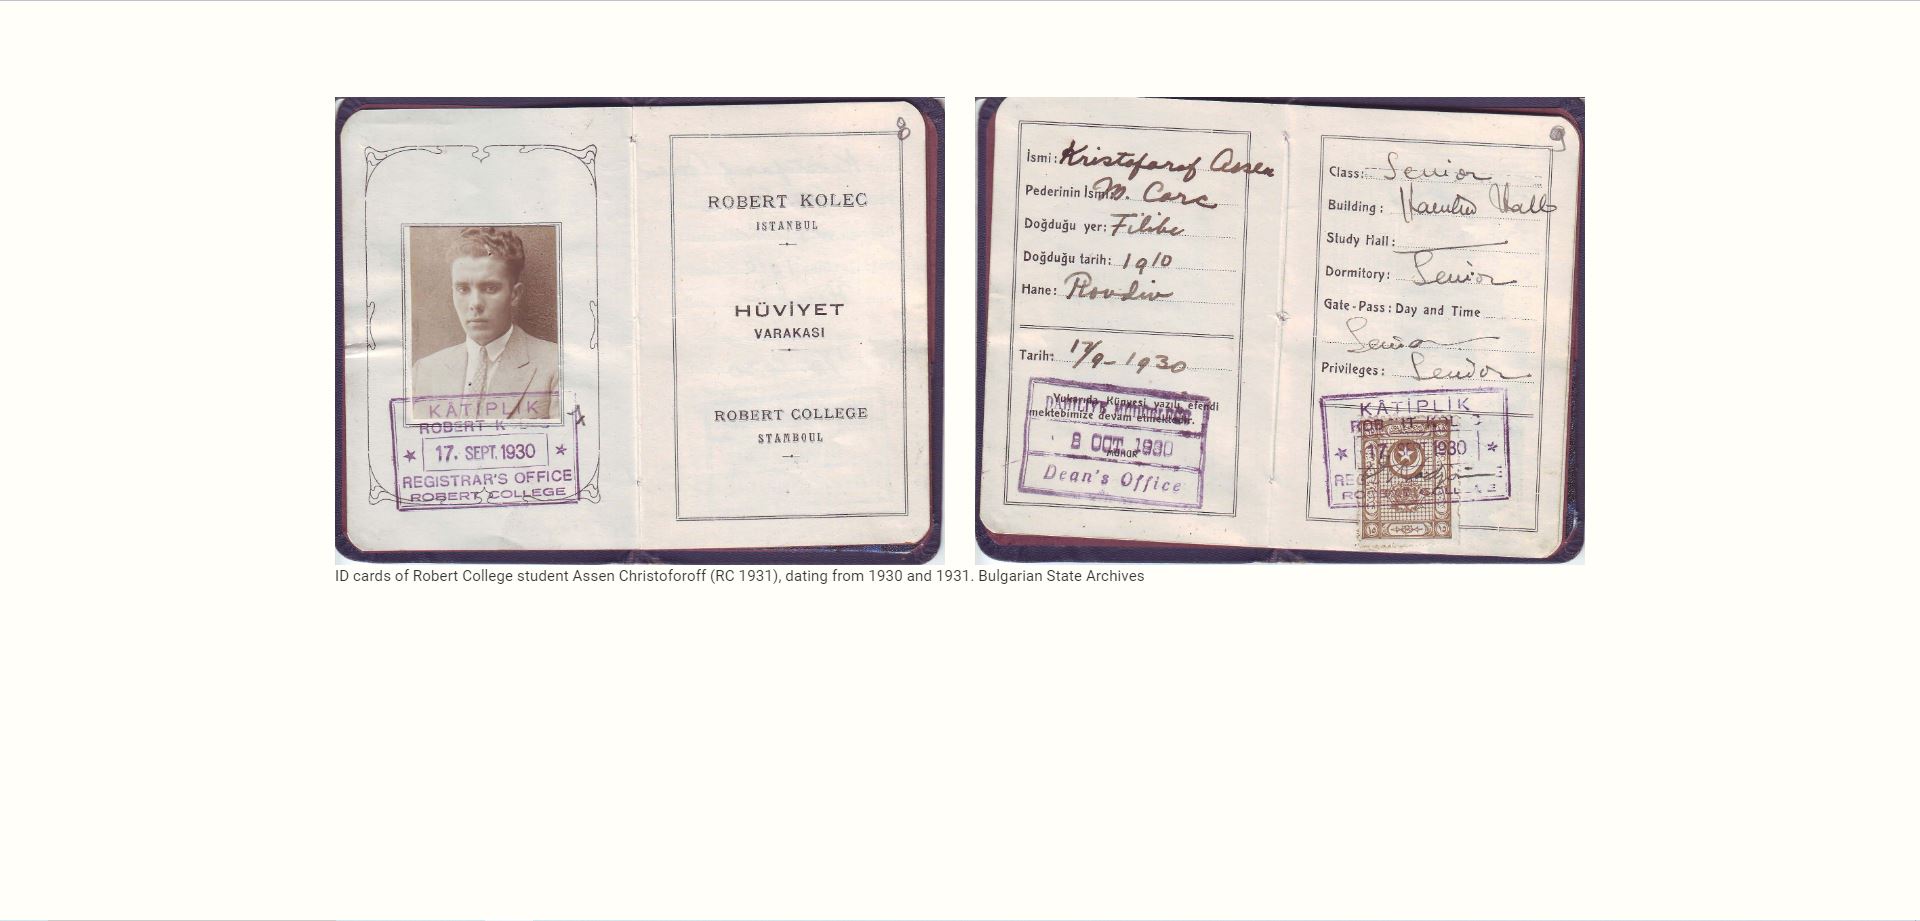 8
ROBERT KOLEC
ISTANBUL
HÜVİYET
VARAKASI
ROBERT COLLEGE
STAMBOUL
KÂTİPLİK
ROBERT K
17. SEPT. 1930
REGISTRAR'S OFFICE
ROBERT COLLEGE
9
İsmi: Kristofarof Assen
Pederinin İsmi:
Doğduğu yer: Filibe
Doğduğu tarih: 1910
Hane: Plovdiv
Tarih: 17/9-1930
Yukarıda Künyesi yazılı efendi
mektebimize devam etmektedir.
8 OCT 1930
MÜHÜR
Dean's Office
Class: Senior
Building: Hall
Study Hall:
Dormitory: Senior
Gate-Pass: Day and Time
Senior
Privileges: Senior
KÂTİPLİK
17 1930
15 15
ID cards of Robert College student Assen Christoforoff (RC 1931), dating from 1930 and 1931. Bulgarian State Archives